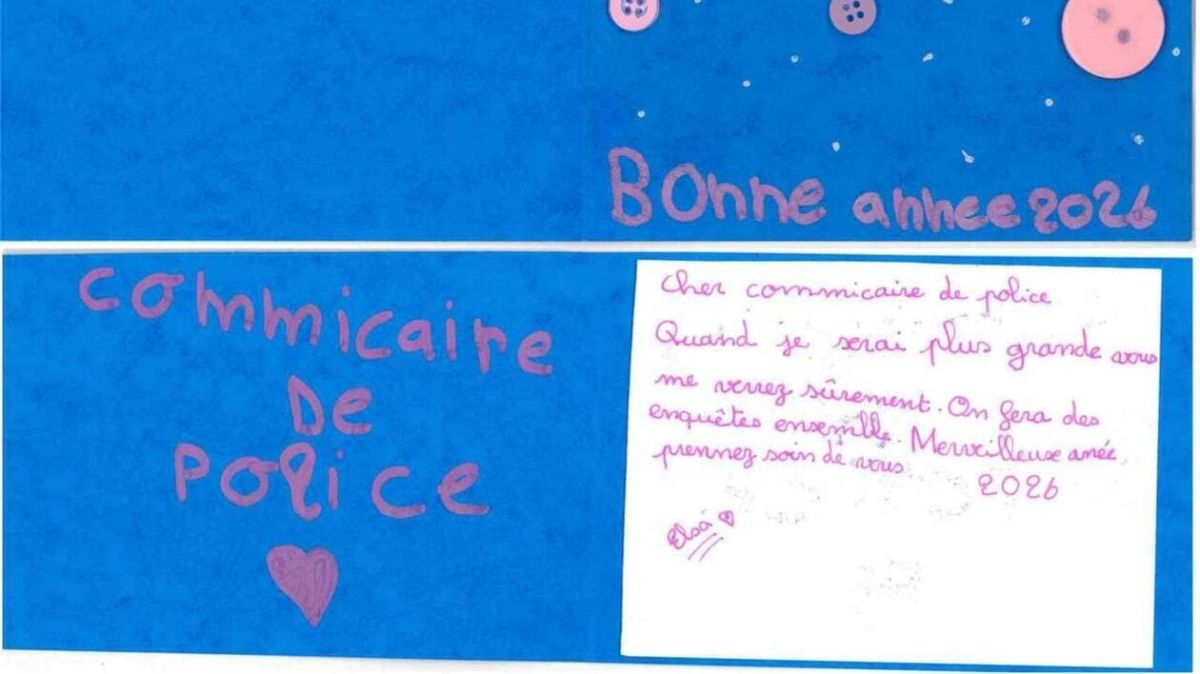 Bonne annee 2026
Commicaire
De
Police
Cher commicaire de police
Quand je serai plus grande vous
me verrez sûrement. On fera des
enquêtes ensemble. Merveilleuse année,
prennez soin de vous
2026
Elsa